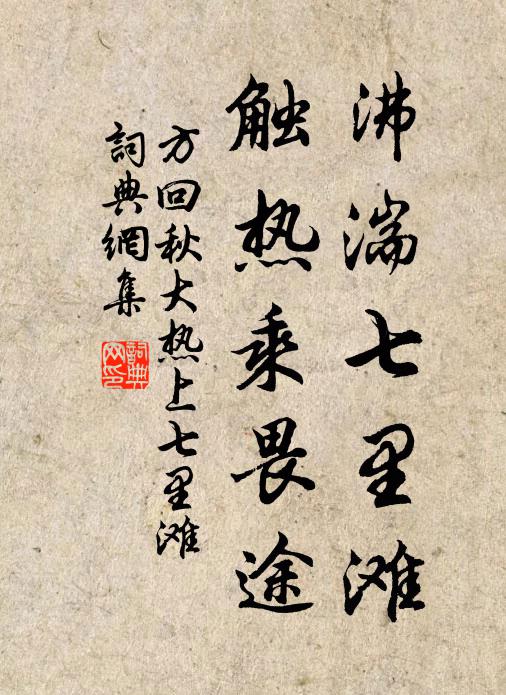 沸湍七里滩
触热乘畏途
方回秋大热上七里滩
詞典網集
詞典网印